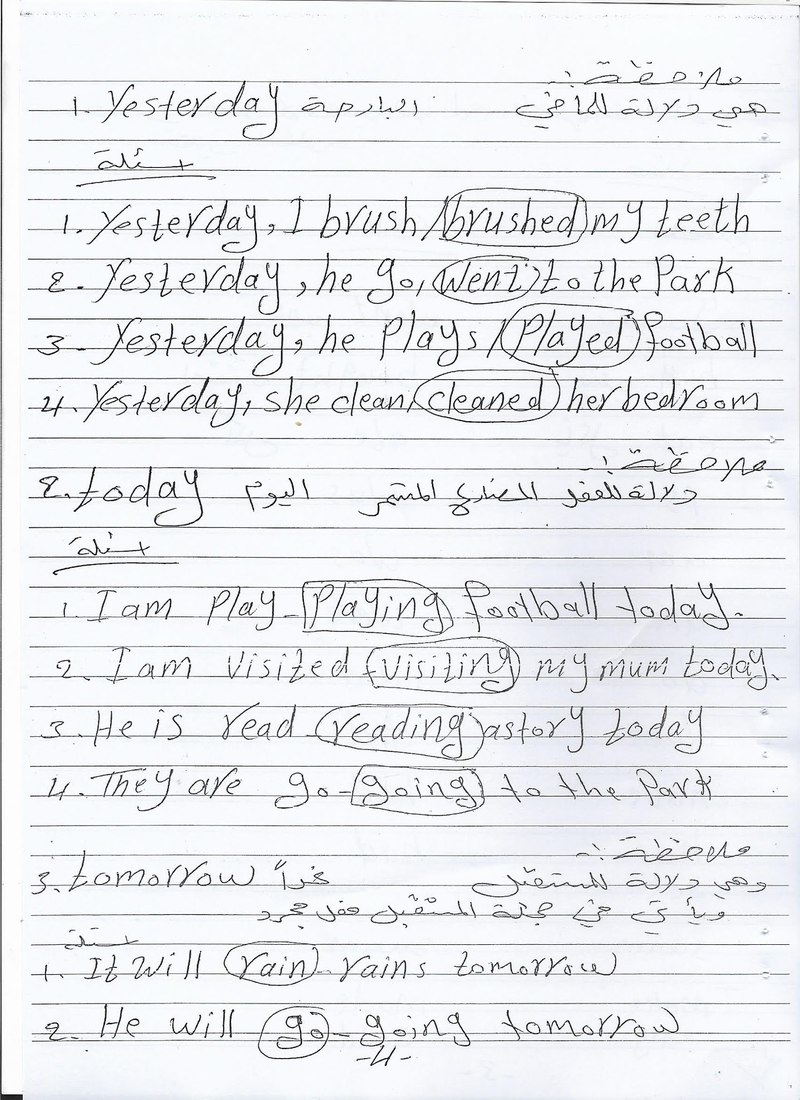 ملاحظة :-
1. Yesterday البارحة هي دلالة للماضي
اسئلة
1. Yesterday, I brush / brushed my teeth
2. Yesterday, he go, went to the Park
3. Yesterday, he Plays / Played football
4. Yesterday, she clean, cleaned her bedroom
ملاحظة :-
2. today اليوم دلالة للفعل المضارع المستمر
اسئلة
1. I am Play - Playing football today.
2. I am visited - visiting my mum today.
3. He is read reading a story today
4. They are go - going to the Park
ملاحظة :-
3. tomorrow غداً وهي دلالة للمستقبل
ويأتي في جملة المستقبل فعل مجرد
اسئلة
1. It will rain - rains tomorrow
2. He will go - going tomorrow
-4-